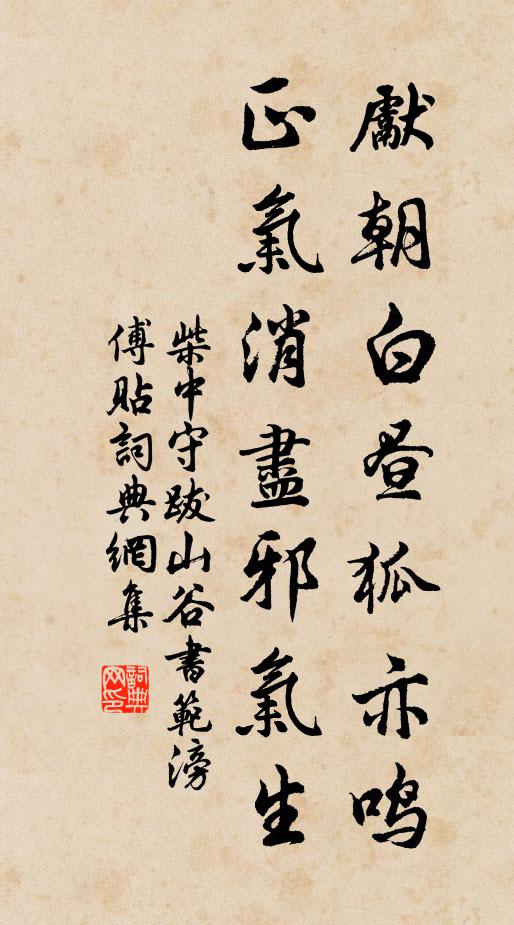 獻朝白昼狐亦鳴
正氣消盡邪氣生
柴中守跋山谷書範滂
傅貼詞典網集
詞典
网印